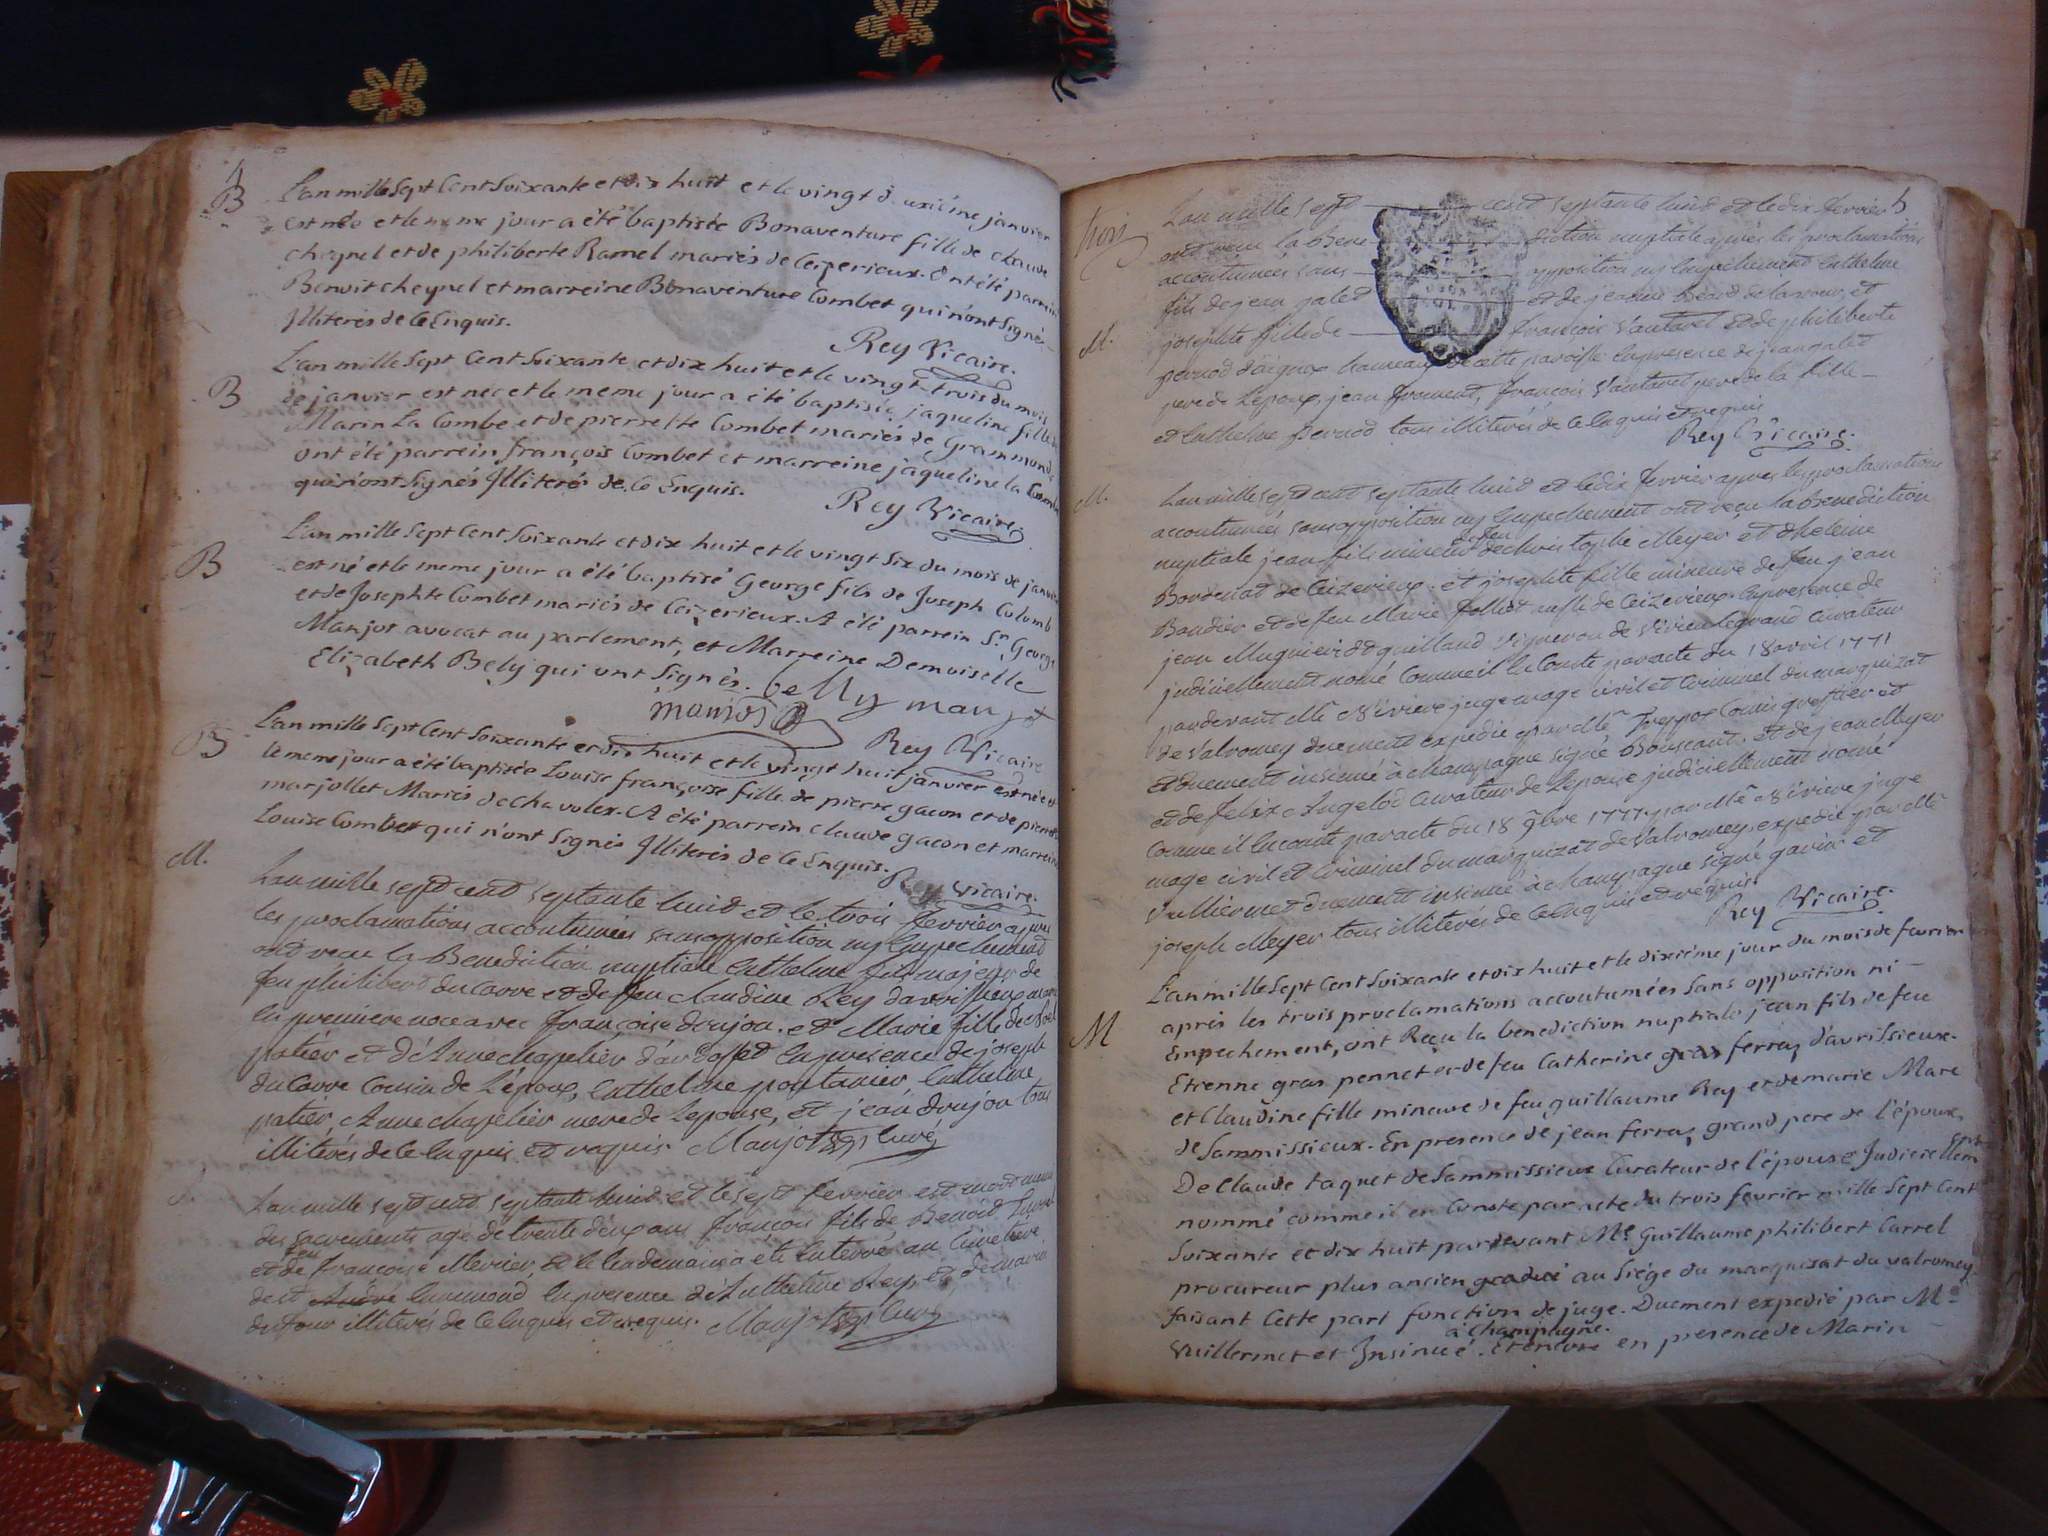 4
B
L'an mille Sept Cent Soixante et dix huit et le vingt deuxiéme janvier
est née et le meme jour a été baptisée Bonaventure fille de claude
cheynel et de philiberte Ramel mariés de Ceizerieux. Ont été parrein
Benoit cheynel et marreine Bonaventure Combet qui n'ont Signés
Illiterés de ce Enquis.
Rey Vicaire.
B
L'an mille Sept Cent Soixante et dix huit et le vingt trois du mois
de janvier est née et le meme jour a été baptisée jaqueline fille de
Marin La Combe et de pierrette Combet mariés de Grammond
ont été parrein françois Combet et marreine jaqueline la Combe
qui n'ont Signés Illiterés de ce Enquis.
Rey Vicaire.
B
L'an mille Sept Cent Soixante et dix huit et le vingt Six du mois de janvier
est né et le meme jour a été baptisé George fils de Joseph Colomb
et de Josephte Combet mariés de Ceizerieux. A été parrein Sr. George
Manjot avocat au parlement, et Marreine Demoiselle
Elizabeth Bely qui ont Signés. belly manjot
manjot
Rey Vicaire
B
L'an mille Sept Cent Soixante et dix huit et le vingt huit janvier est née et
le meme jour a été baptisée Louise françoise fille de pierre gacon et de pierrette
marjollet Mariés de Chavolex. A été parrein claude gacon et marreine
Louise Combet qui n'ont Signés Illiterés de ce Enquis.
Rey Vicaire.
M.
L'an mille sept cent septante huit et le trois fevrier apres
les proclamations accoutumées sans opposition ny Enpechement
ont recu la Benediction nuptiale Enthelme fils majeur de
feu philibert du Carre et de feu claudine Rey d'avrissieux
En premiere noce avec françoise doujon. et Marie fille de
patier et d'Anne chapelier d'ardosset En presence de joseph
du Carre Cousin de L'époux, Enthelme pontanier Enthelme
patier, Anne chapelier mere de Lepouse, et jean doujon tous
illiterés de ce Enquis et requis. Manjot Curé
S.
L'an mille sept cent septante huit et le sept fevrier est mort muni
des sacrements agé de trente deux ans françois fils de Benoit
et de feu françoise Mercier, et le lendemain a été Enterré au Cimetiere
de St André En presence d'Anthelme Rey et de marin
du four illiterés de ce Enquis et requis. Manjot Curé
5
trois
M.
L'an mille sept cent septante huit et le dix fevrier
ont recu la Bene diction nuptiale apres les proclamations
accoutumées sans opposition ny Enpechement Enthelme
fils de jean galet et de jeanne
josephte fille de françois Vautaret et de philiberte
pernod d'aignoz hameau de cette paroisse En presence de jean galet
pere de L'époux, jean froment, françois Vautaret pere de la fille
et Enthelme pernod tous illiterés de ce Enquis et requis
Rey Vicaire.
M.
L'an mille sept cent septante huit et le dix fevrier apres les proclamations
accoutumées sans opposition ny Enpechement ont recu la Benediction
nuptiale jean fils mineur de feu christophle Meyer et d'helene
Bordenat de Ceizerieux. et josephte fille mineure de feu jean
Boudier et de feu Marie aussi de Ceizerieux. En presence de
jean Muguier dit guilland Vigneron de Virieu le grand Curateur
judiciellement nomé Comme il En Conste par acte du 18 avril 1771
par devant Me Riviere juge mage civil et Criminel du marquizat
de Valromey duement expedié par Me Commis greffier et
et duement insinué à champagne signé Bouscaut. et de jean Meyer
et de felix Angelod Curateur de L'epouse judiciellement nomé
Comme il En conste par acte du 18 9bre 1777 par Me Riviere juge
mage civil et Criminel du marquizat de Valromey expedié par Me
Vulliermet duement insinué à champagne signé gavin et
joseph Meyer tous illiterés de ce Enquis et requis.
Rey Vicaire.
M
L'an mille Sept Cent Soixante et dix huit et le dixiéme jour du mois de fevrier
aprés les trois proclamations accoutumées Sans opposition ni
Empechement, ont Reçu la benediction nuptiale jean fils de feu
Etienne gras pennet et de feu Catherine ferraz d'avrissieux.
et Claudine fille mineure de feu guillaume Rey et de marie Mare
de Sammissieux. En presence de jean ferraz grand pere de l'époux,
De Claude taquet de Sammissieux Curateur de l'épouse Judiciellement
nommé comme il en Conste par acte du trois fevrier mille Sept Cent
Soixante et dix huit pardevant Me. Guillaume philibert Carrel
procureur plus ancien gradué au Siége du marquisat du valromey
faisant Cette part fonction de juge. Duement expedié par Me.
à Champagne.
Vuillermet et Insinué. et encore en presence de Marin